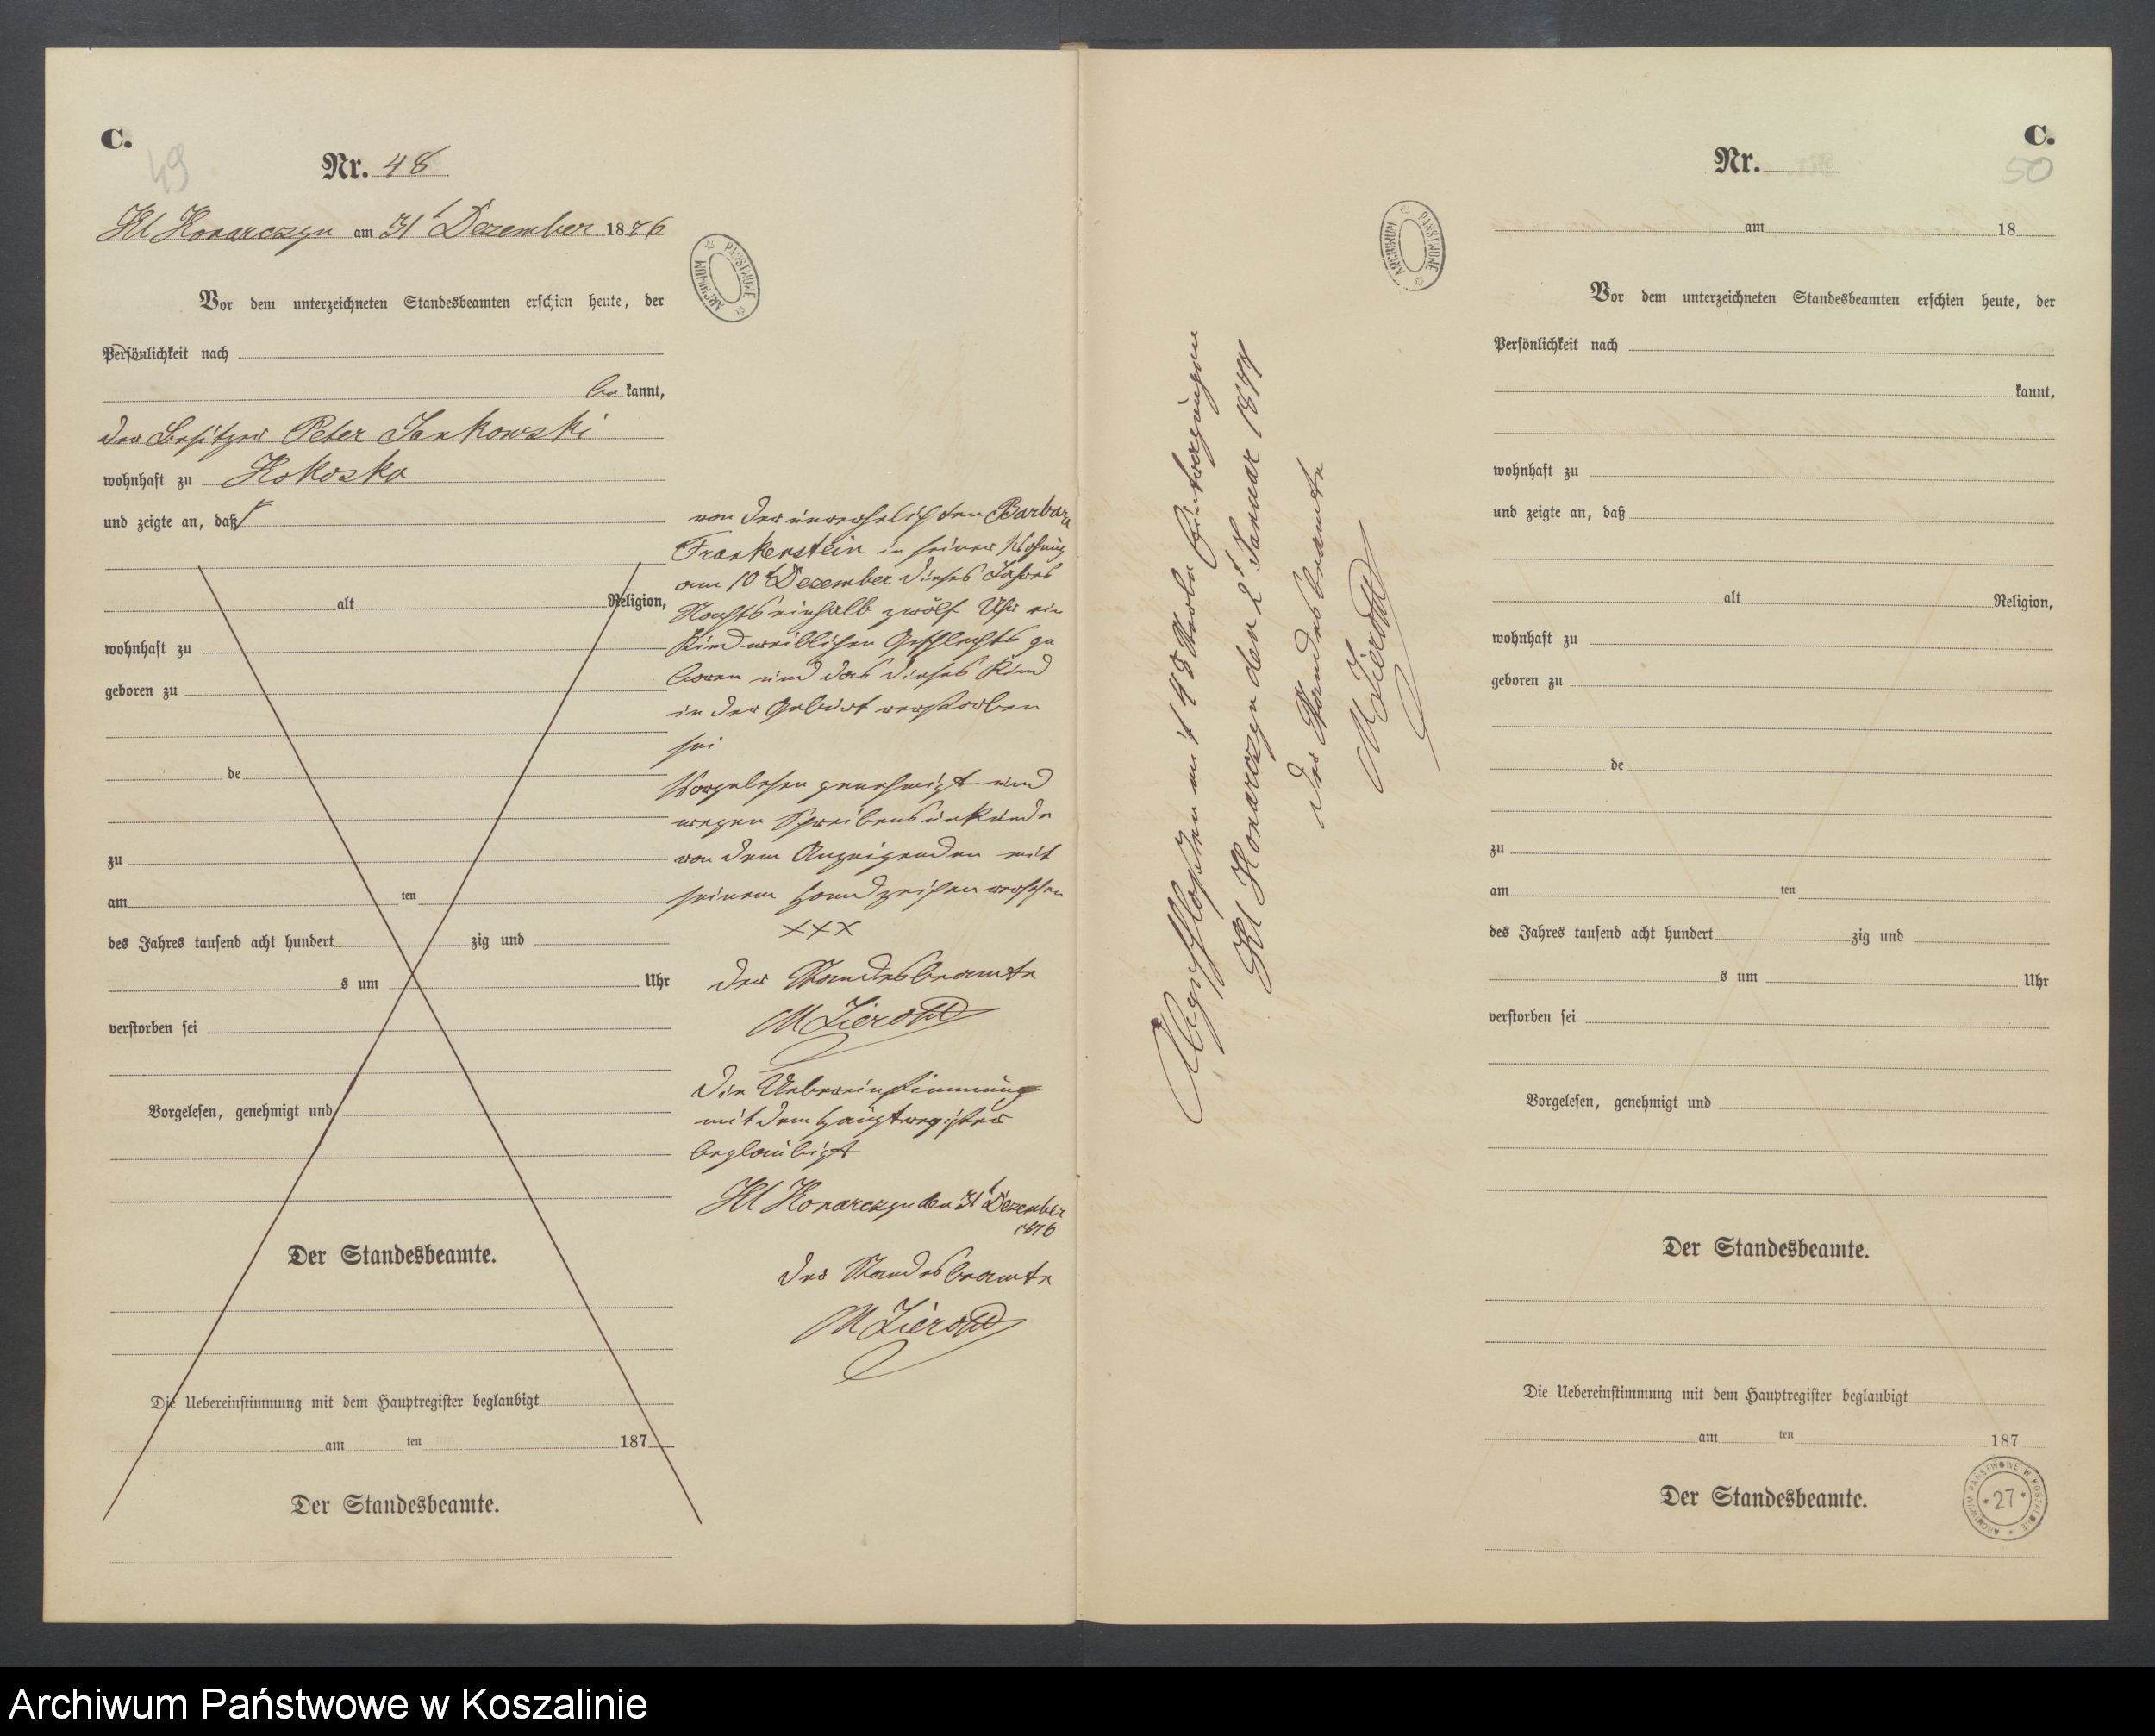 C.
49
Nr. 48
Kl Konarczyn am 31t Dezember 1876
Vor dem unterzeichneten Standesbeamten erschien heute, der
Persönlichkeit nach
be kannt,
der Besitzer Peter Jankowski
wohnhaft zu Kokoska
und zeigte an, daß
alt Religion,
wohnhaft zu
geboren zu
de
zu
am ten
des Jahres tausend acht hundert zig und
s um Uhr
verstorben sei
Vorgelesen, genehmigt und
Der Standesbeamte.
Die Uebereinstimmung mit dem Hauptregister beglaubigt
am ten 187
Der Standesbeamte.
ARCHIWUM PAŃSTWOWE
von der unverehelichten Barbara
Frankenstein in seiner Wohnung
am 10t Dezember dieses Jahres
Nachts einhalb zwölf Uhr ein
Kind weiblichen Geschlechts ge
boren und das dieses Kind
in der Geburt verstorben
sei
Vorgelesen genehmigt und
wegen Schreibensunkunde
von dem Anzeigenden mit
seinem Handzeichen versehen
+++
Der Standesbeamte
M Zierott
Die Uebereinstimmung
mit dem Hauptregister
beglaubigt
Kl Konarczyn den 31t Dezember
1876
Der Standesbeamte
M Zierott
Abgeschlossen mit 48 Sterbe Eintragungen
Kl Konarczyn den 2t Januar 1877
Der Standesbeamte
M Zierott
ARCHIWUM PAŃSTWOWE
C.
50
Nr.
am 18
Vor dem unterzeichneten Standesbeamten erschien heute, der
Persönlichkeit nach
kannt,
wohnhaft zu
und zeigte an, daß
alt Religion,
wohnhaft zu
geboren zu
de
zu
am ten
des Jahres tausend acht hundert zig und
s um Uhr
verstorben sei
Vorgelesen, genehmigt und
Der Standesbeamte.
Die Uebereinstimmung mit dem Hauptregister beglaubigt
am ten 187
Der Standesbeamte.
ARCHIWUM PAŃSTWOWE W KOSZALINIE
* 27 *
Archiwum Państwowe w Koszalinie